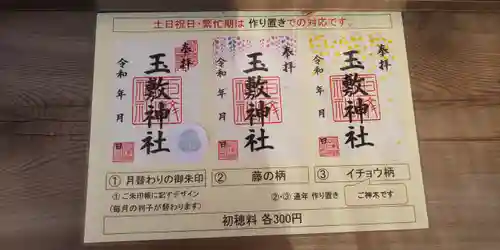 土日祝日・繁忙期は 作り置きでの対応です。
奉拝
玉敷神社
令和 年 月 日
奉拝
玉敷神社
令和 年 月 日
奉拝
玉敷神社
令和 年 月 日
① 月替わりの御朱印
② 藤の柄
③ イチョウ柄
①ご朱印帳に記すデザイン
(毎月の判子が替わります)
②・③ 通年 作り置き
ご神木です
初穂料 各300円